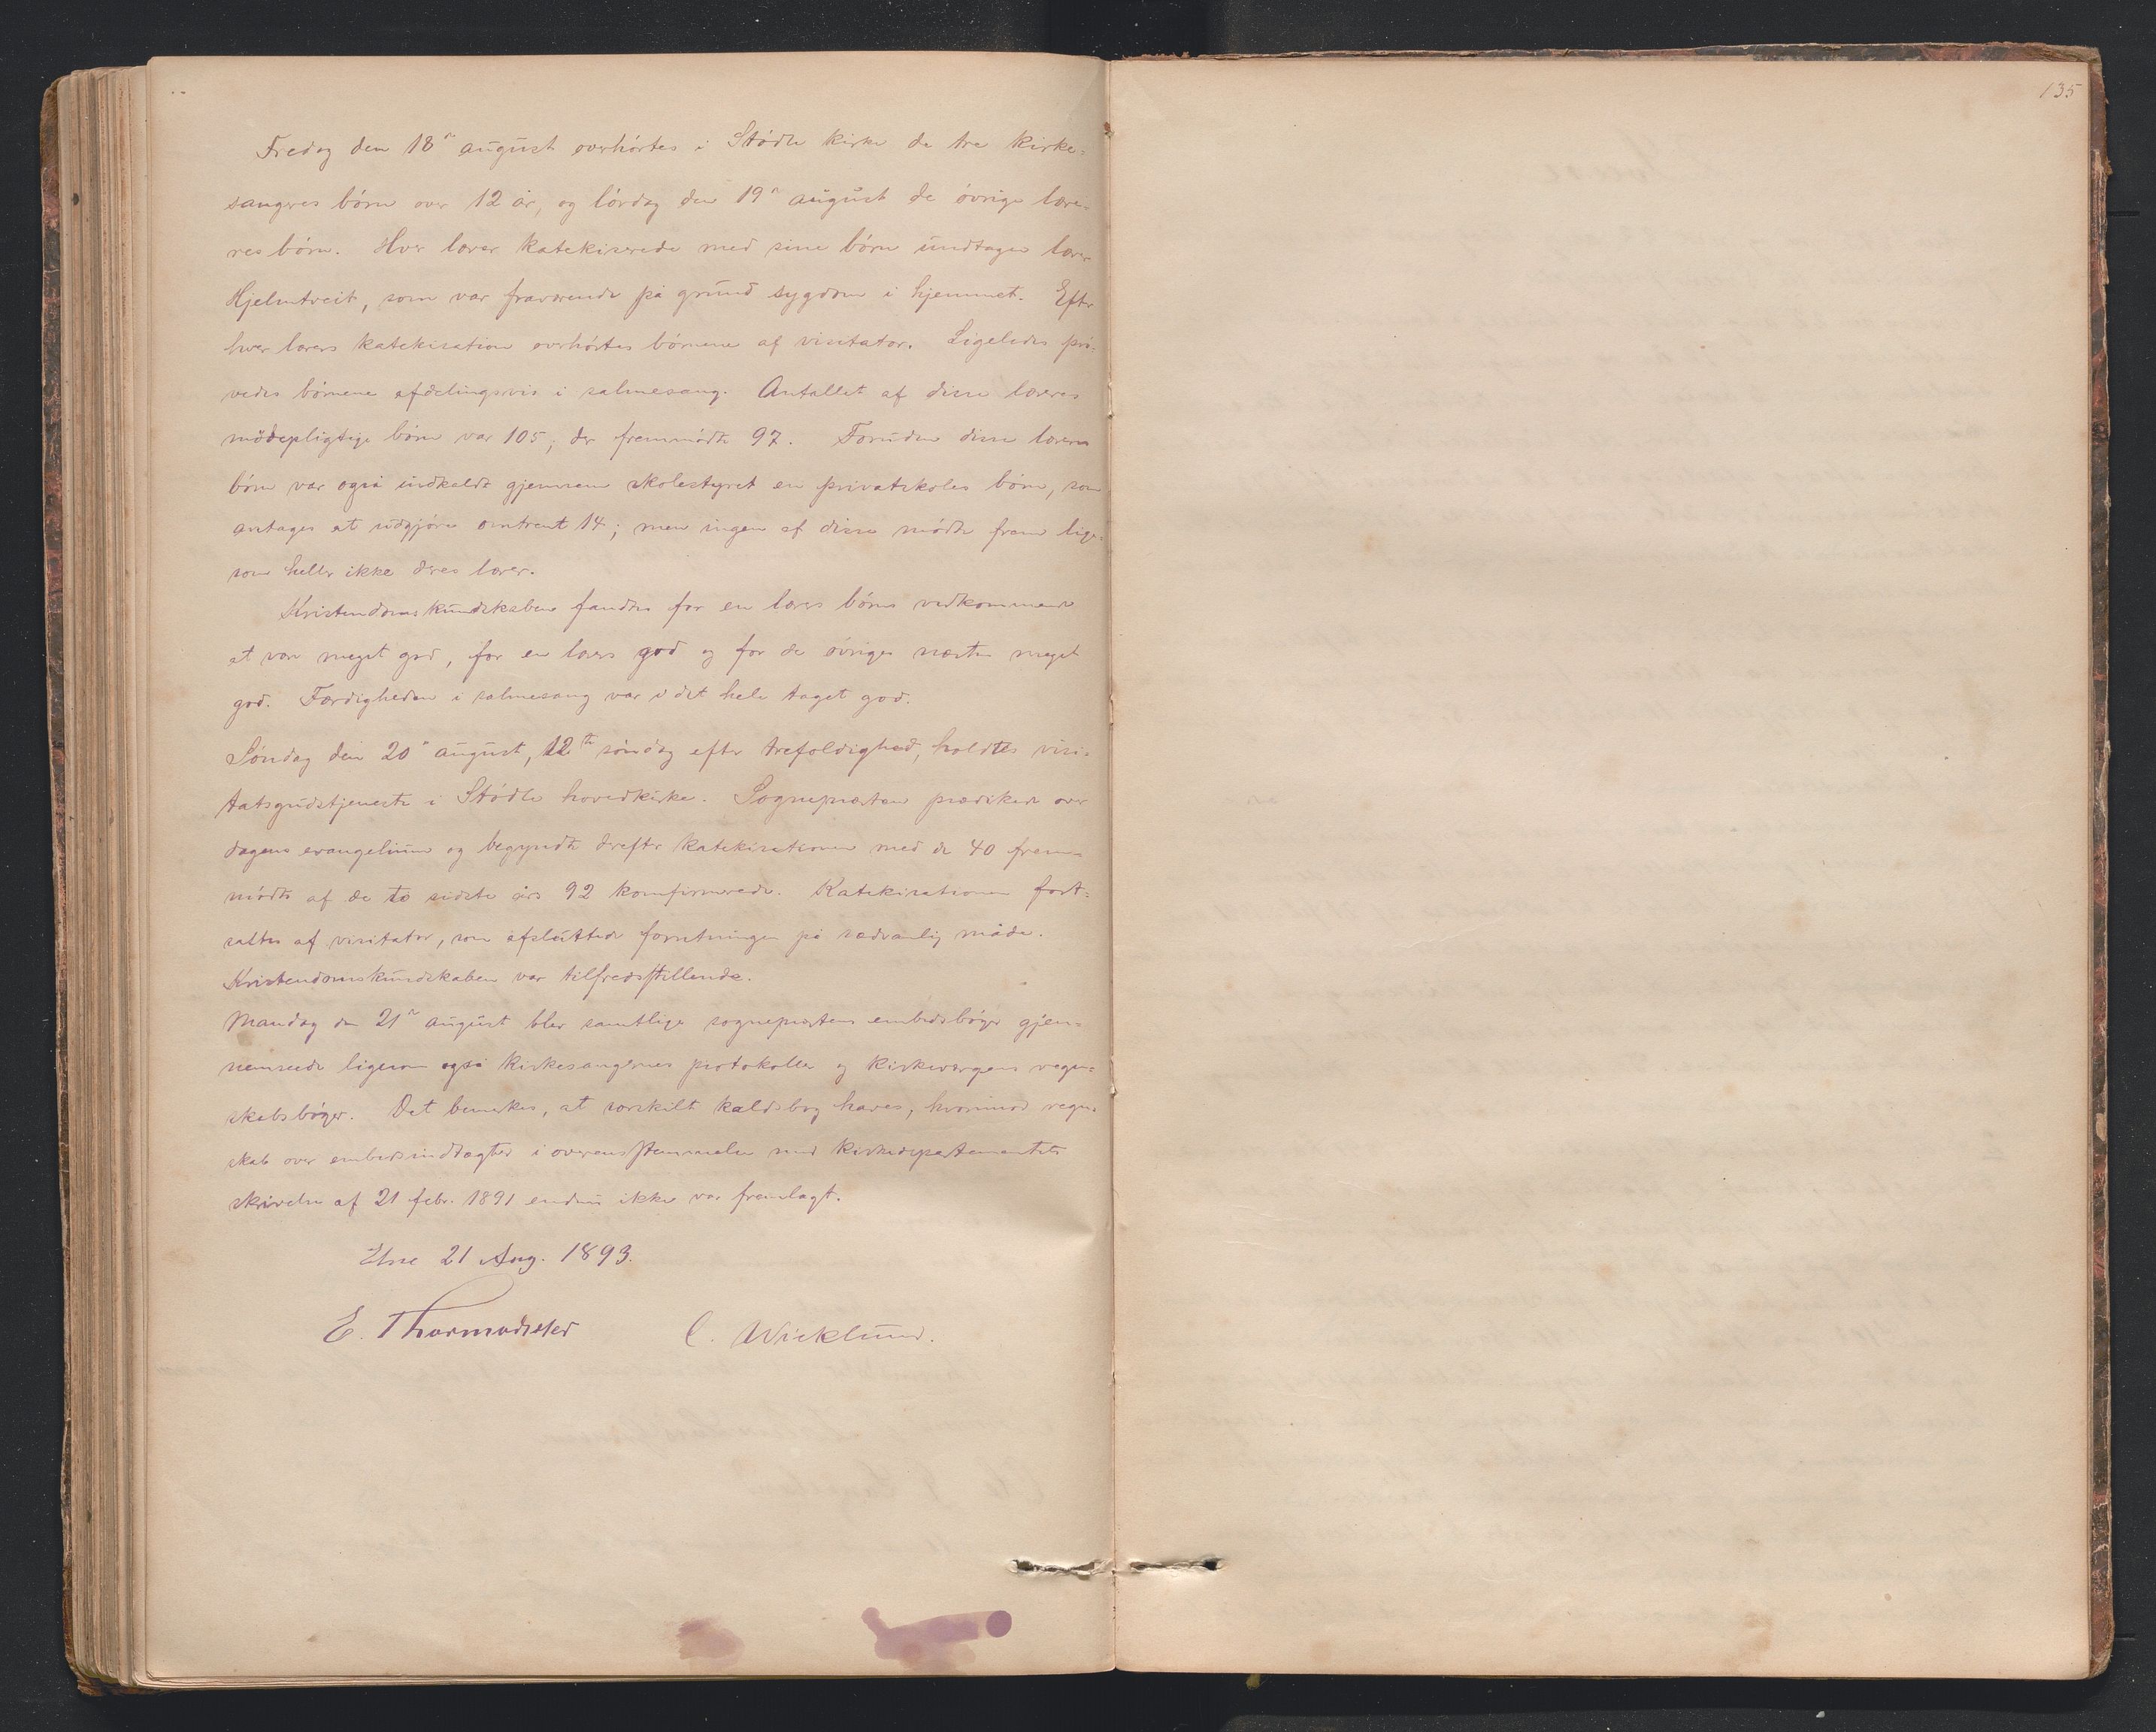 135
Fredag den 18ⁿ august overhørtes i Stødle kirke de tre kirke=
sangeres børn over 12 år, og lørdag den 19ⁿ august de øvrige lære=
res børn. Hver lærer katekiserede med sine børn undtagen lærer
Hjelmtveit, som var fraværende på grund sygdom i hjemmet. Efter
hver lærers katekisation overhørtes børnene af visitator. Ligeledes prø=
vedes børnene afdelingsvis i salmesang. Antallet af disse læreres
mødepligtige børn var 105; der fremmødte 97. Foruden disse læreres
børn var også indkaldt gjennem skolestyret en privatskoles børn, som
antages at udgjøre omtrent 14; men ingen af disse mødte frem lige=
som heller ikke deres lærer.
Kristendomskundskaben fandtes for en lærers børns vedkommende
at være meget god, for en lærers god og for de øvriges næsten meget
god. Færdigheden i salmesang var i det hele taget god.
Søndag den 20ⁿ august, 12te søndag efter trefoldighed, holdtes visi=
tatsgudstjeneste i Stødle hovedkirke. Sognepræsten prædikede over
dagens evangelium og begyndte derefter katekisationen med de 40 frem=
mødte af de to sidste års 92 konfirmerede. Katekisationen fort=
sattes af visitator, som afsluttede forretningen på sædvanlig måde.
Kristendomskundskaben var tilfredsstillende.
Mandag den 21ⁿ august blev samtlige sognepræstens embedsbøger gjen=
nemseede ligesom også kirkesangernes protokoller og kirkeværgens regn=
skabsbøger. Det bemærkes, at særskilt kaldsbog haves, hvorimod regn=
skab over embedsindtægter i overensstemmelse med kirkedepartementets
skrivelse af 21 febr. 1891 endnu ikke var fremlagt.
Etne 21 Aug. 1893.
E. Thormodsæter C. Wicklund.